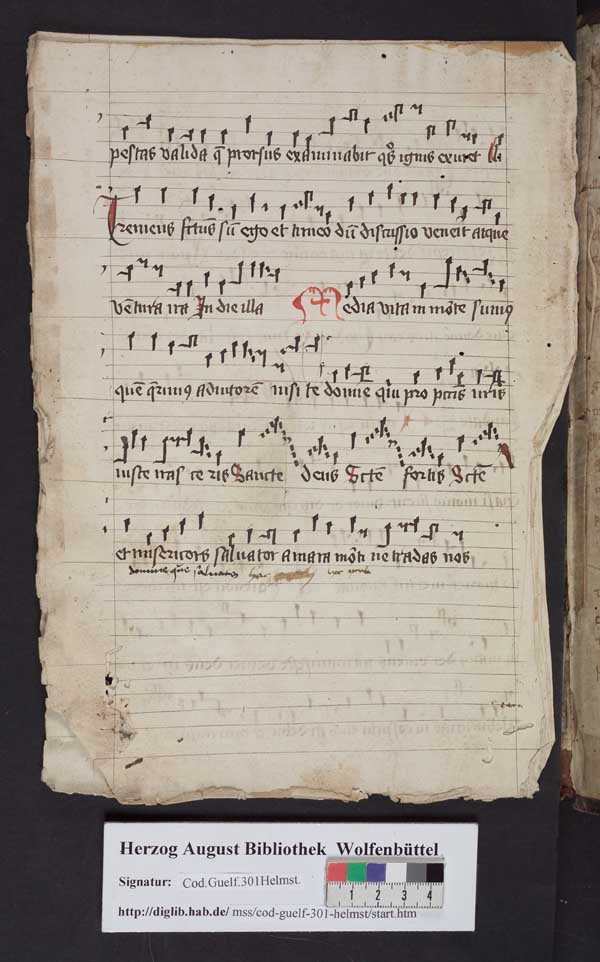 pestas valida q̄ prorsus examinabit qͦs ignis exuret
Tremens fctūs sū ego et timeo dū discussio venerit atque
vētura ira In die illa Media vita in mōte sumꝰ
quē q̄rimꝰ adiutorē nisi te domīe qui pro pctīs nrīs
iuste irasceris Sancte deus Sctē fortis Sctē
et misericors saluator amara mōti ne tradas nos
Herzog August Bibliothek Wolfenbüttel
Signatur: Cod.Guelf.301Helmst.
1 2 3 4
http://diglib.hab.de/ mss/cod-guelf-301-helmst/start.htm